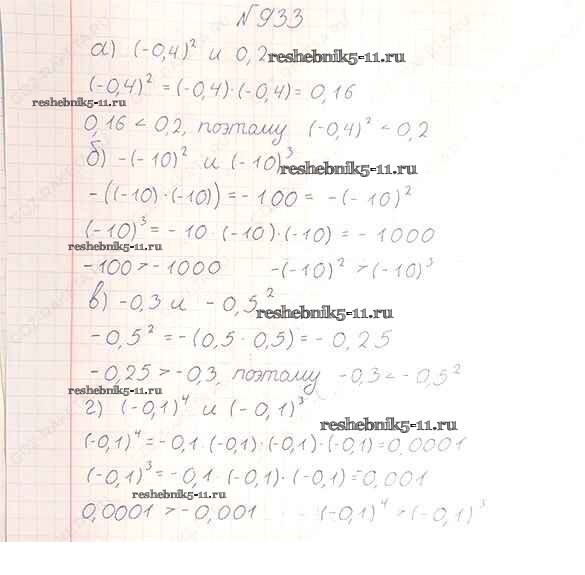 №933
а) (-0,4)² и 0,2 reshebnik5-11.ru
(-0,4)² = (-0,4)·(-0,4) = 0,16
reshebnik5-11.ru
0,16 < 0,2, поэтому (-0,4)² < 0,2
б) -(-10)² и (-10)³
reshebnik5-11.ru
-((-10)·(-10)) = -100 = -(-10)²
(-10)³ = -10·(-10)·(-10) = -1000
reshebnik5-11.ru
-100 > -1000 -(-10)² > (-10)³
в) -0,3 и -0,5²
reshebnik5-11.ru
-0,5² = -(0,5·0,5) = -0,25
-0,25 > -0,3, поэтому -0,3 < -0,5²
reshebnik5-11.ru
г) (-0,1)⁴ и (-0,1)³
reshebnik5-11.ru
(-0,1)⁴ = -0,1·(-0,1)·(-0,1)·(-0,1) = 0,0001
(-0,1)³ = -0,1·(-0,1)·(-0,1) = -0,001
reshebnik5-11.ru
0,0001 > -0,001 (-0,1)⁴ > (-0,1)³